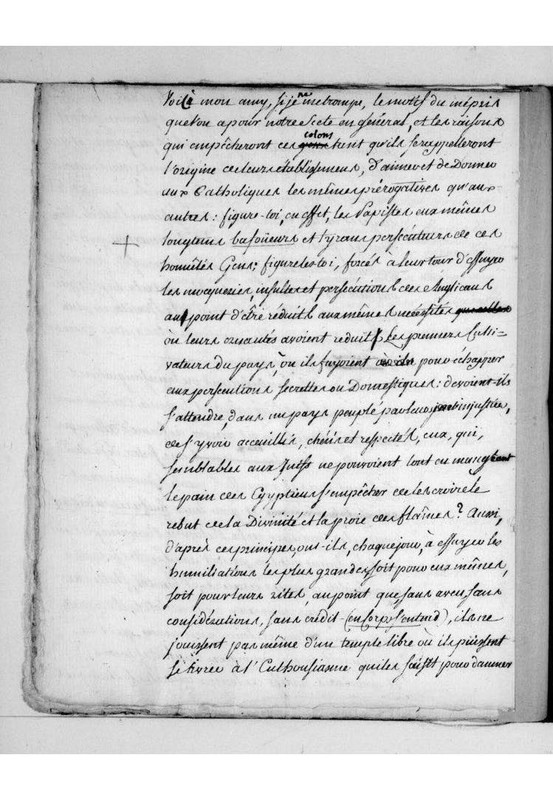 Voilà mon amy, si je ne me trompe, le motif du mépris
que l'on a pour notre secte en général, et les raisons
qui empêcheront ces colons tant qu'ils se rappelleront
l'origine de leurs établissemens, d'aimer et de donner
aux Catholiques les mêmes prérogatives qu'aux
autres : figure-toi, en effet, les Papistes eux mêmes
longtems bafoüeurs et tyrans persécuteurs de ces
honnêtes Gens; figure les-toi, forcés a leur tour d'essuyer
les moqueries, insultes et persécutions des Anglicans
au point d'être réduits aux mêmes nécessités
où leurs cruautés avoient réduit les premiers culti-
vateurs du pays, où ils fuyoient pour echapper
aux persécutions secrettes ou Domestiques : devoient-ils
s'attendre, dans un pays peuplé par leurs injustices,
de s'y voir accueillis, chéris et respectés, eux, qui,
semblables aux Juifs ne pouvoient tout en mangeant
le pain des Egyptiens s'empêcher de les croire le
rebut de la Divinité et la proie des flâmes ? Aussi,
d'après ces principes, ont-ils, chaque jour, à essuyer les
humiliations les plus grandes soit pour eux mêmes,
soit pour leurs rites, au point que sans aveu sans
considérations, sans crédit (en corps s'entend), ils ne
jouissent pas même d'un temple libre où ils puissent
se livrer à l'Enthousiasme qui les saisit pour damner